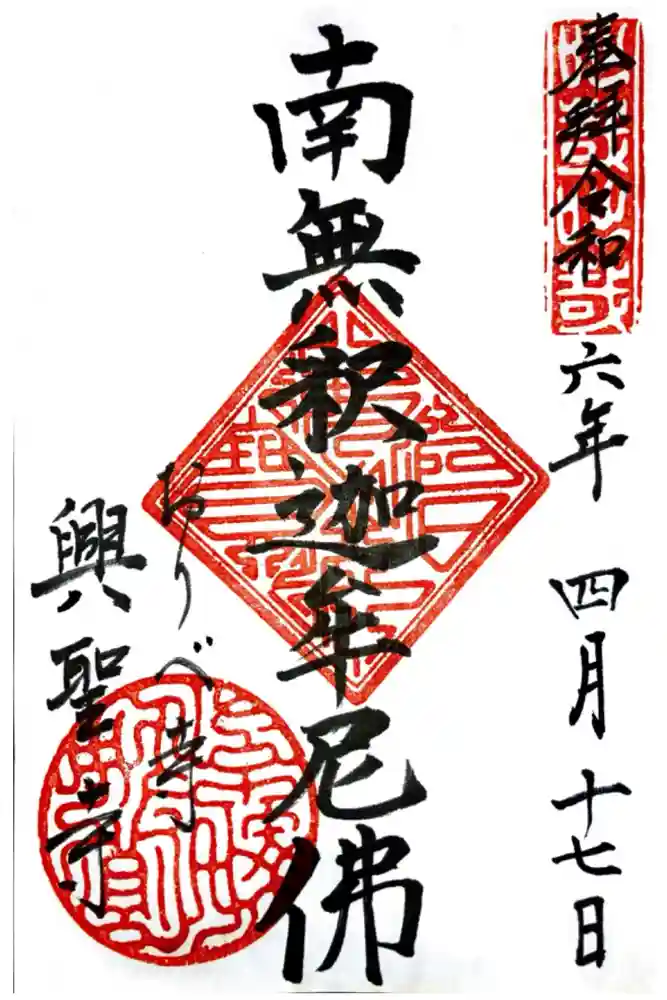 奉拜令和六年 四月十七日
南無釈迦牟尼佛
おりべ寺
興聖寺